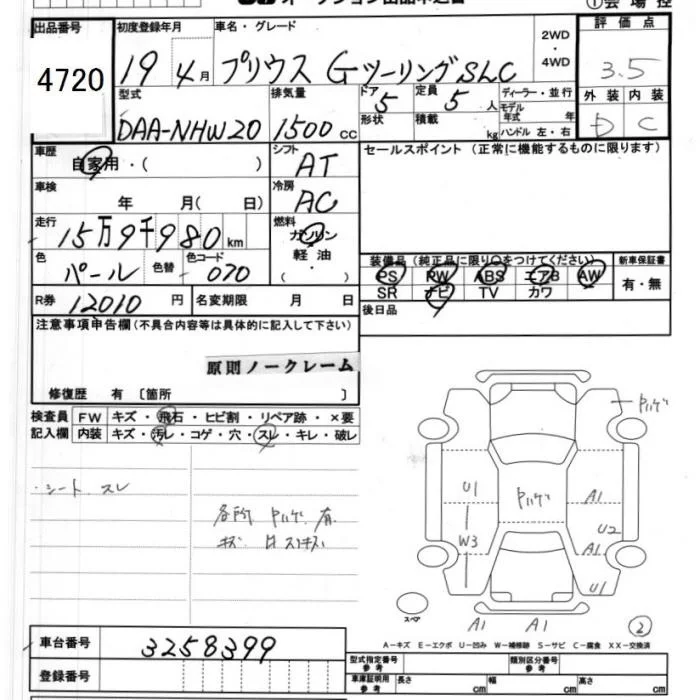 オークション出品申込書
①会場控
出品番号 初度登録年月 車名・グレード 2WD・4WD 評価点
4720 19 4月 プリウス GツーリングSLC 3.5
型式 排気量 ドア 定員 ディーラー・並行 外装 内装
DAA-NHW20 1500cc 5 5人 モデル年式 年 D C
形状 積載 kg ハンドル 左・右
車歴 シフト セールスポイント (正常に機能するものに限ります)
自家用・( ) AT
車検 冷房
年 月( 日) AC
走行 燃料
15万9千980km ガソリン
軽油
( ・ )
色 色替 色コード 装備品(純正品に限り○をつけてください) 新車保証書
パール 070 PS PW ABS エアB AW 有・無
SR ナビ TV カワ
R券 12010円 名変期限 月 日 後日品
注意事項申告欄(不具合内容等は具体的に記入して下さい)
原則ノークレーム
修復歴 有〔箇所 〕
検査員 FW キズ・飛石・ヒビ割・リペア跡・×要
記入欄 内装 キズ・汚レ・コゲ・穴・スレ・キレ・破レ
・シート スレ
各所 Pハゲ 有
Pハゲ
U1 Pハゲ A1
W3 U2
A1
U1
スペア
A1 A1 ②
A−キズ E−エクボ U−凹み W−補修跡 S−サビ C−腐食 XX−交換済
車台番号 3258399
登録番号
型式指定番号 参考 類別区分番号 参考
車庫証明用 参考 長さ cm 幅 cm 高さ cm